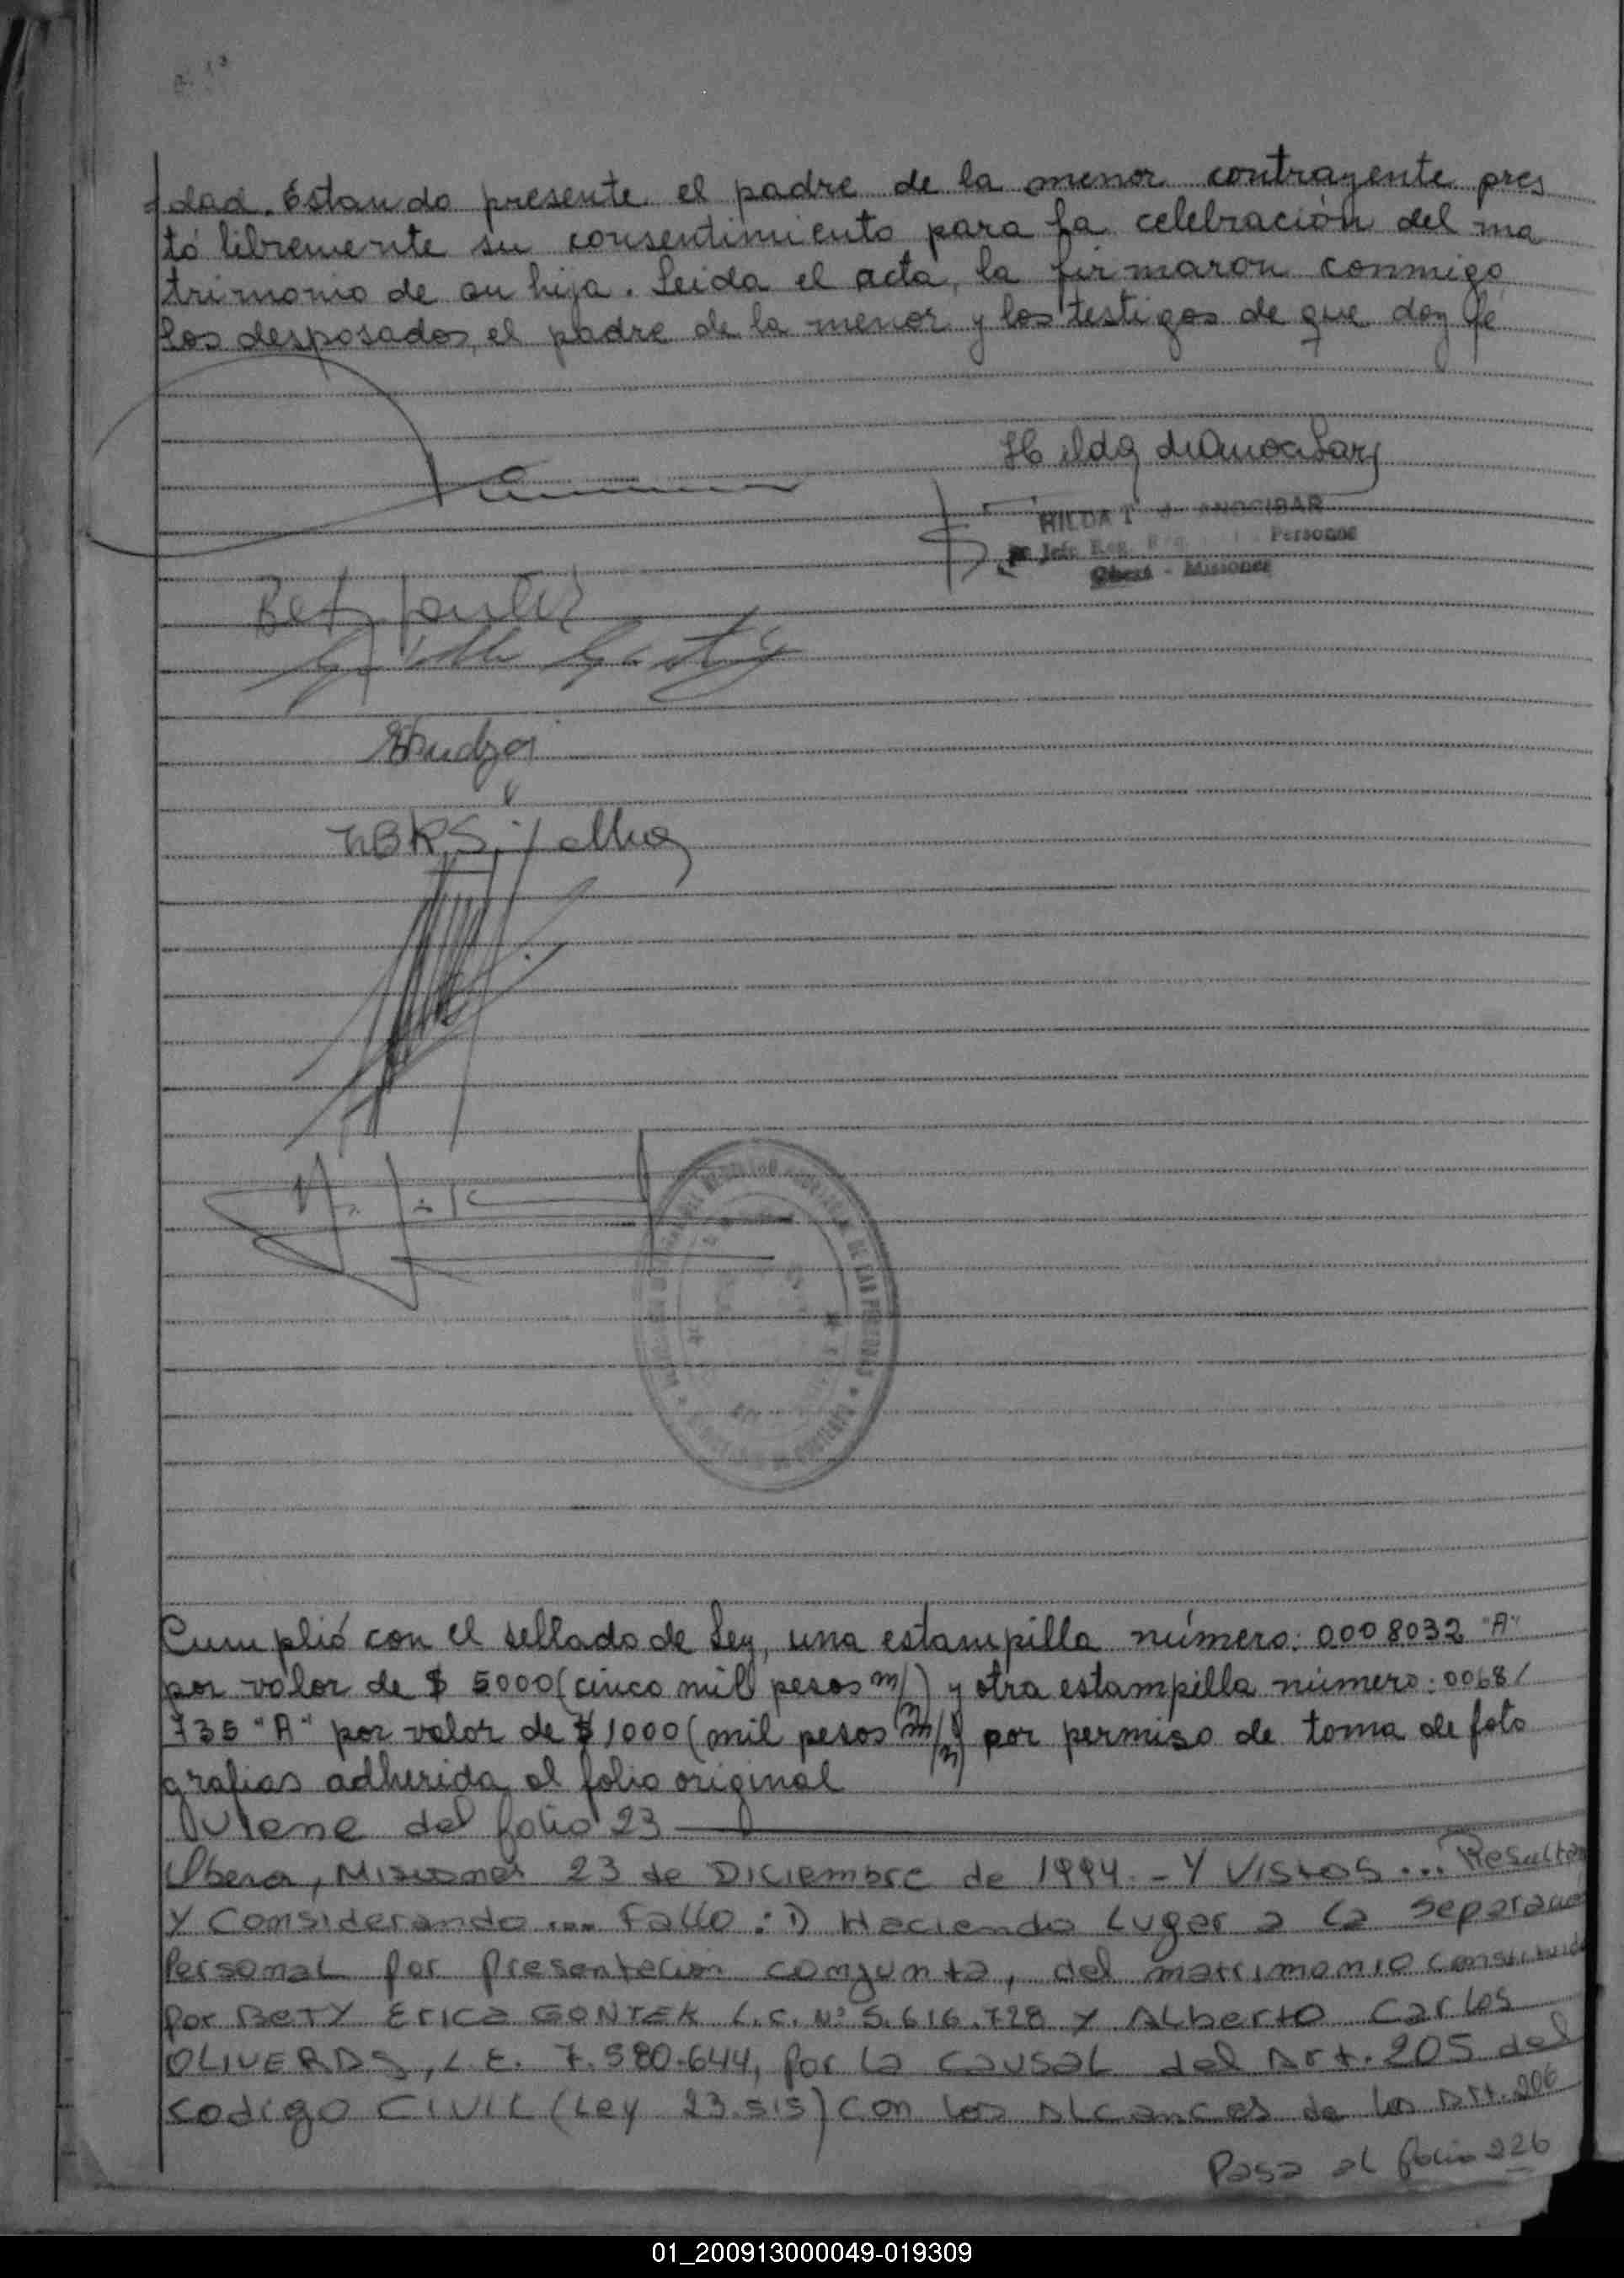 dad. Estando presente el padre de la menor contrayente pres
tó libremente su consentimiento para la celebración del ma
trimonio de su hija. Leida el acta, la firmaron conmigo
los desposados, el padre de la menor y los testigos de que doy fé
HILDA T. ANOCIBAR
Jefe Reg. Personas
Oberá - Misiones
DE LAS PERSONAS
Cumplió con el sellado de Ley, una estampilla número: 0008032 "A"
por valor de $ 5000 (cinco mil pesos m/) y otra estampilla número: 0068/
735 "A" por valor de $ 1000 (mil pesos m/n) por permiso de toma de foto
grafias adherida al folio original
Viene del folio 23
Obera, Misiones 23 de Diciembre de 1994. - Y Vistos... Resultan
Y Considerando ... Fallo: 1) Haciendo Lugar a la Separacion
Personal por presentacion conjunta, del matrimonio constituido
por BETY Erica GONTEK L.C. Nº 5.616.728 y Alberto Carlos
OLIVERDS, L.E. 7.580.644, por la causal del Art. 205 del
codigo CIVIL (Ley 23.515) con los Alcances de los Art. 206
Pasa al folio 226
01_200913000049-019309